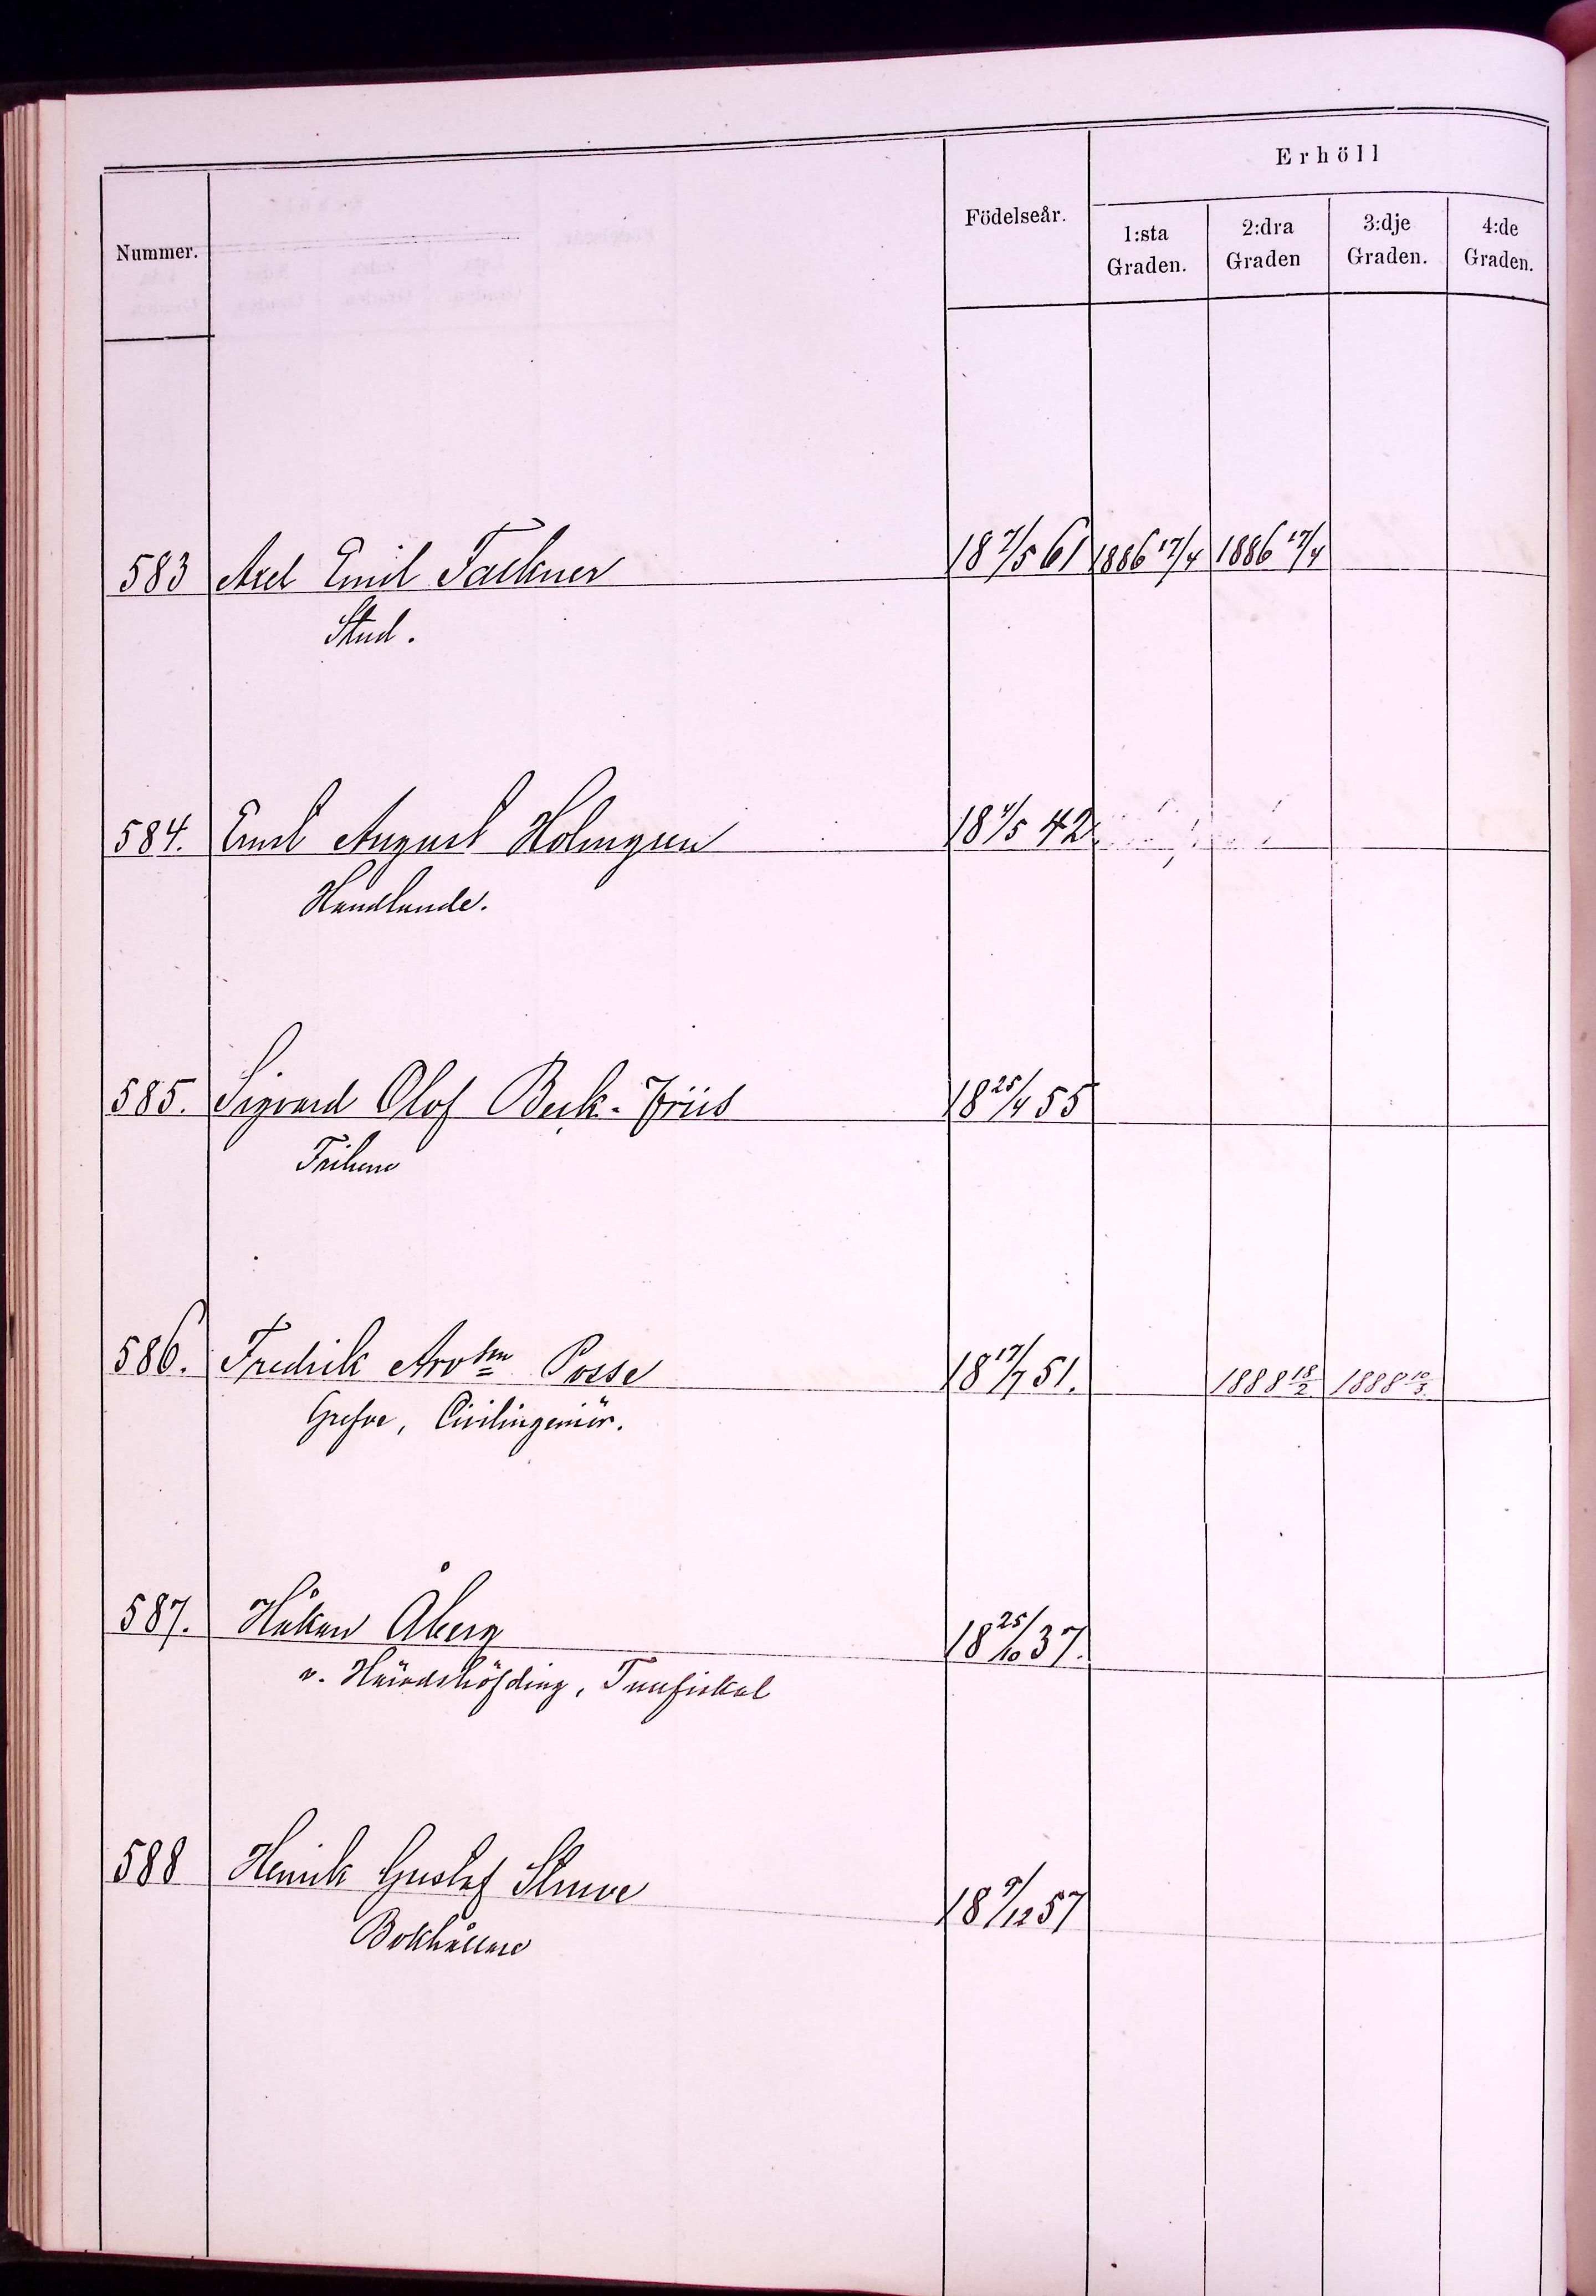 Erhöll
Nummer. Födelseår. 1:sta Graden. 2:dra Graden 3:dje Graden. 4:de Graden.
583 Axel Emil Falkner 18 7/5 61 1886 17/4 1886 17/4
Stud.
584. Ernst August Holmgren 18 4/5 42
Handlande.
585. Sigvard Olof Beck-Friis 18 25/4 55
Friherre
586. Fredrik Arvson Posse 18 17/7 51. 1888 18/2 1888 10/3
Grefve, Civilingeniör.
587. Håkan Åberg 18 25/10 37.
v. Häradshöfding,
588 Henrik Gustaf Struve 18 9/12 57
Bokhållare